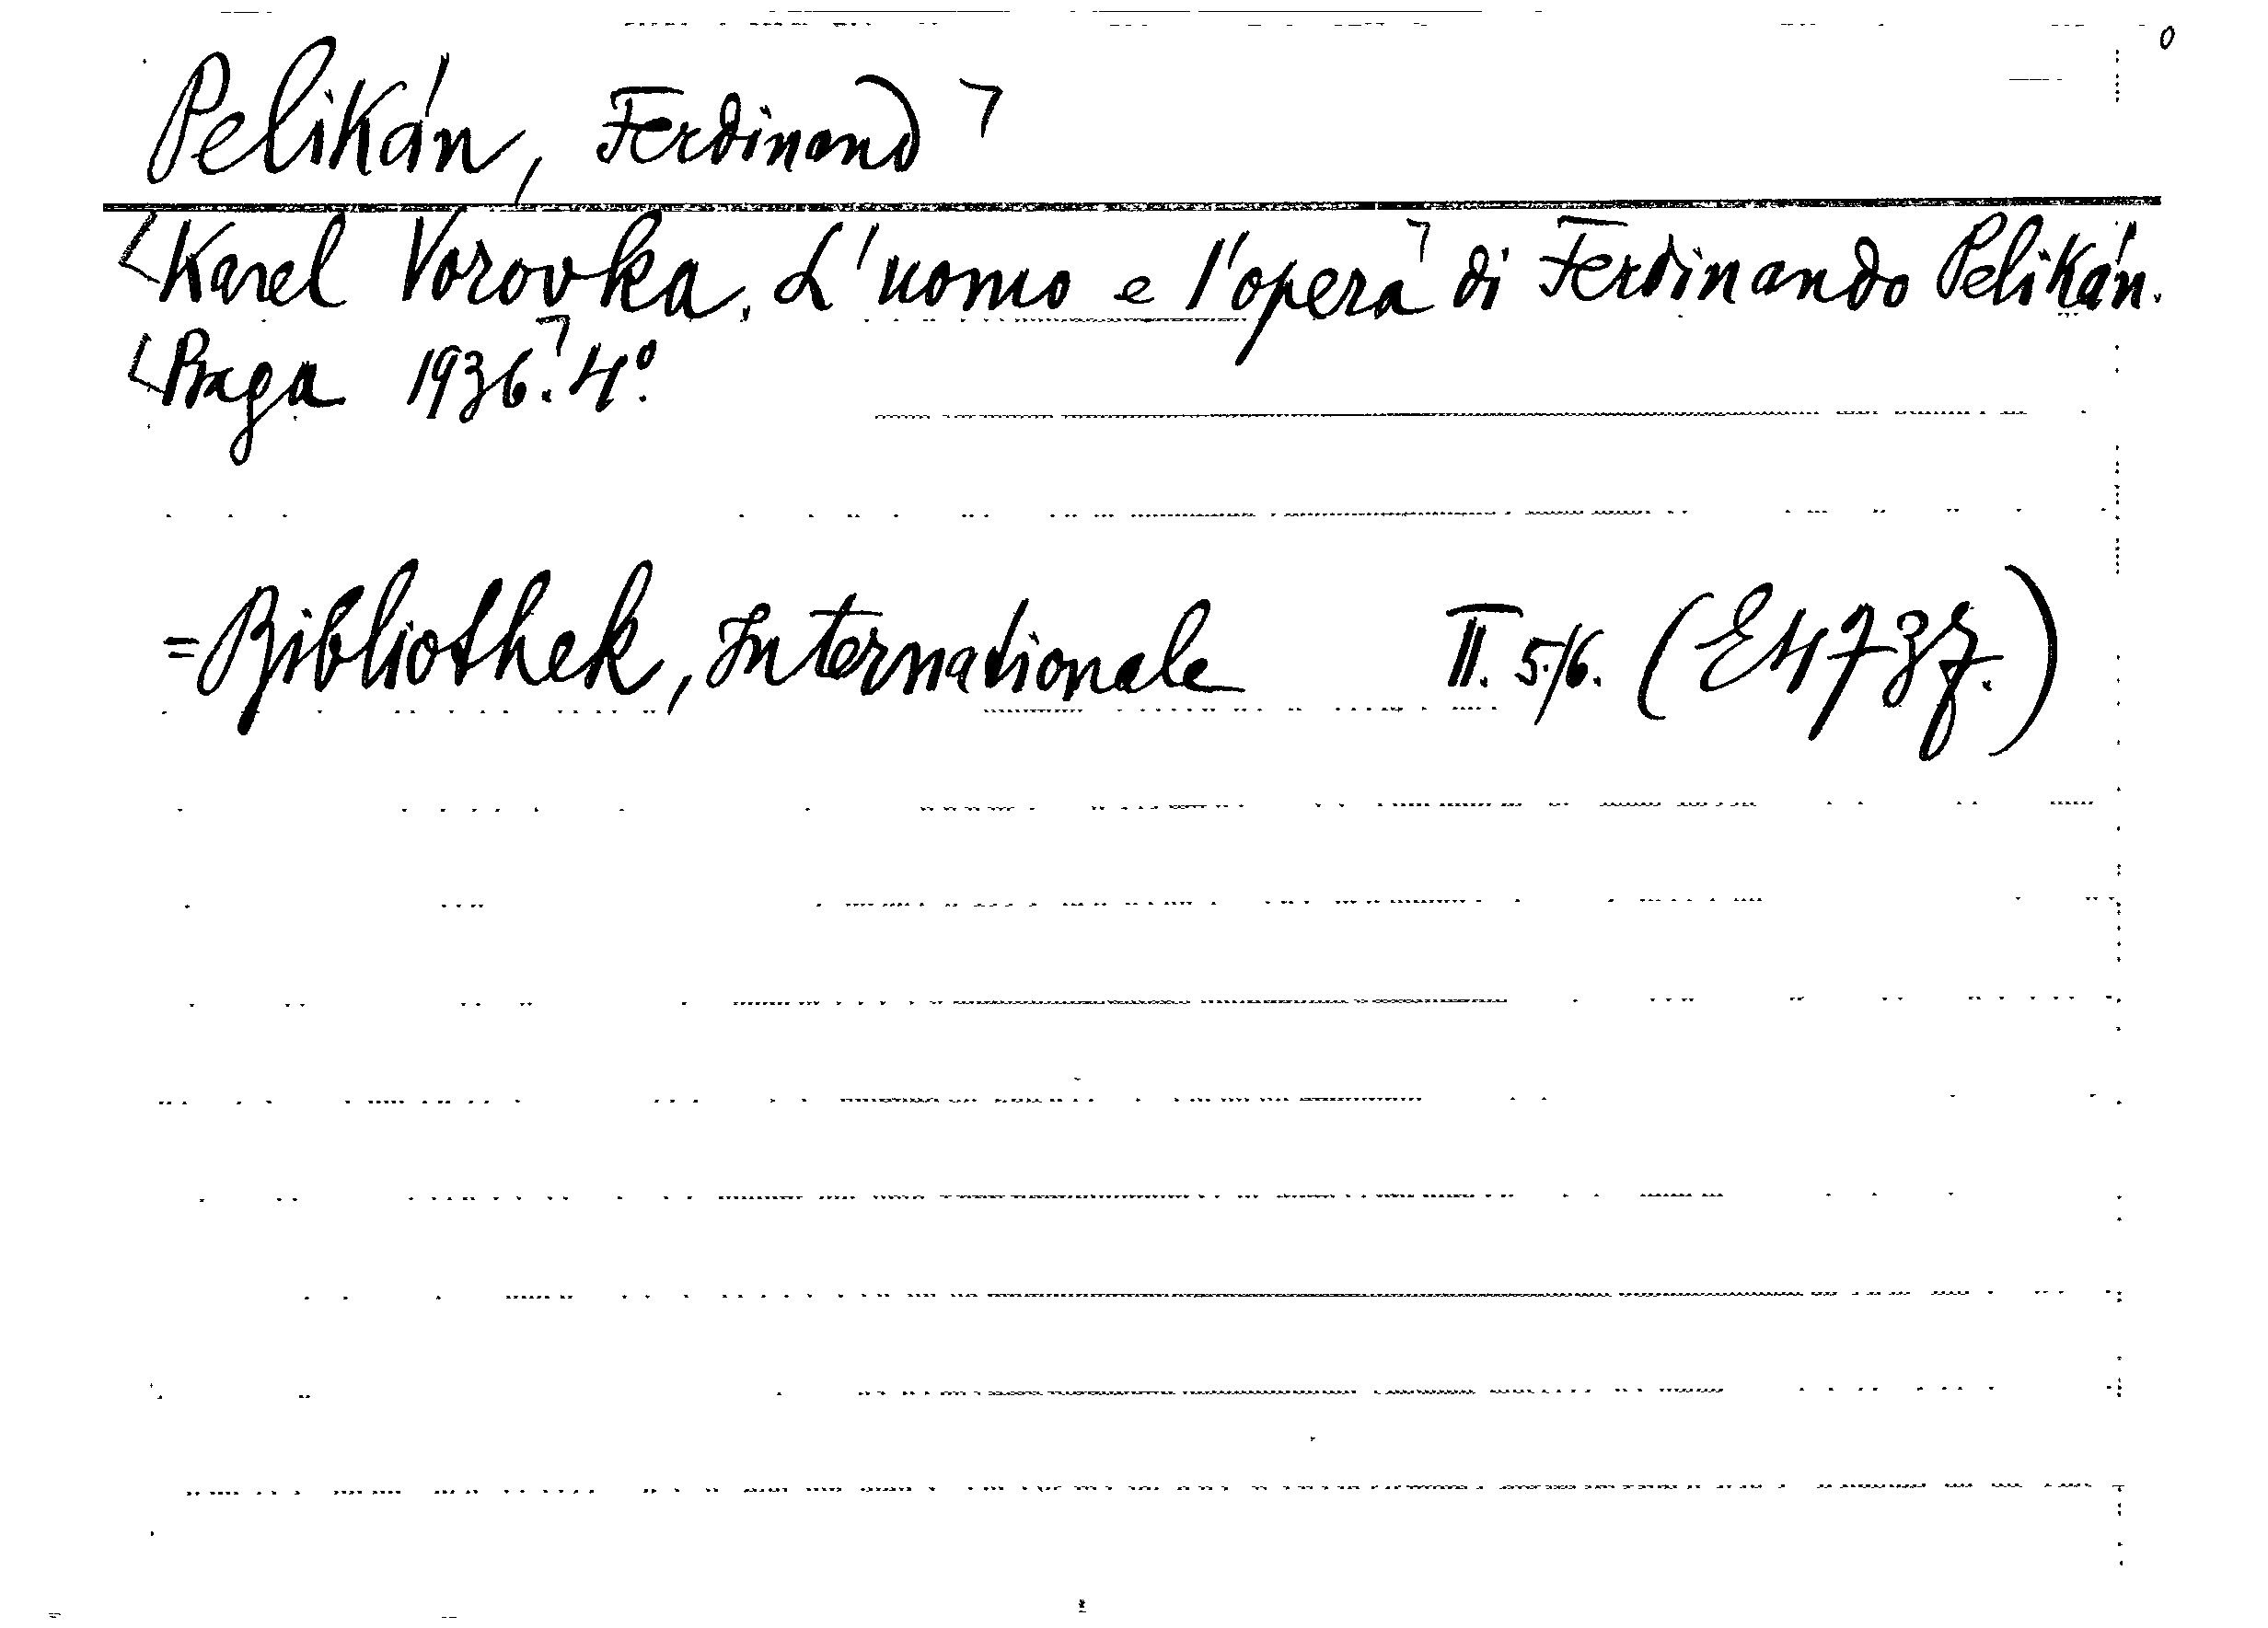 Pelikán, Ferdinand ㄱ
└Karel Vorovka. L'uomo e l'operaㄱ di Ferdinando Pelikán.
└Praga 1936ㄱ. 4°.
=Bibliothek, Internationale II. 5./6. (E 473 f.)